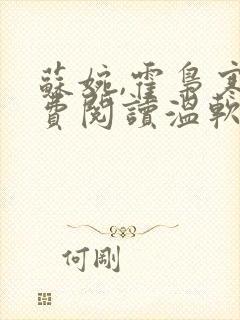 蘇婉,霍梟寒
費閱讀溫軟
何剛